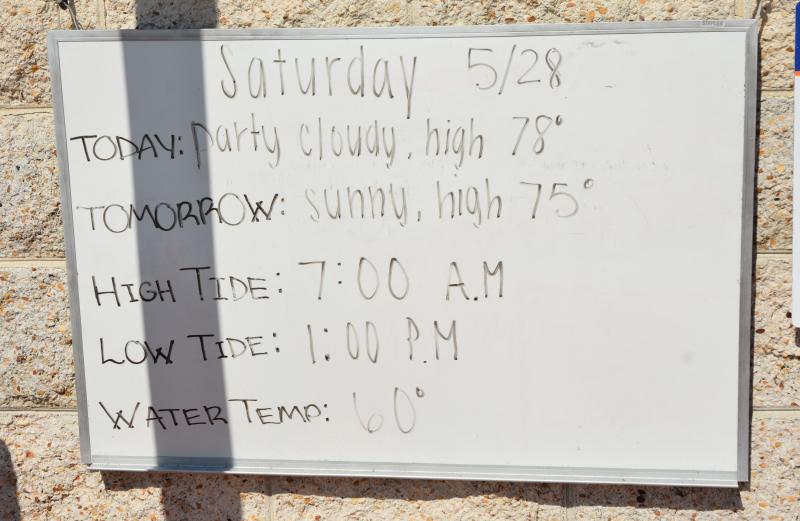 Saturday 5/28
TODAY: party cloudy, high 78°
TOMORROW: sunny, high 75°
HIGH TIDE: 7:00 A.M
LOW TIDE: 1:00 P.M
WATER TEMP: 60°